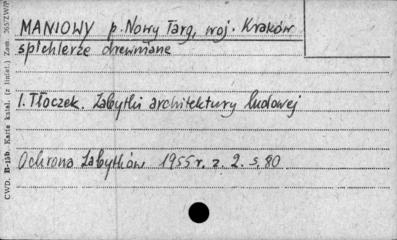 MANIOWY p. Nowy Targ, woj. Kraków
spichlerze drewniane
I. Tłoczek. Zabytki architektury ludowej
Ochrona Zabytków 1955 r. z. 2. s. 80
CWD. B-15b. Karta katal. (z liniat.) Zam.